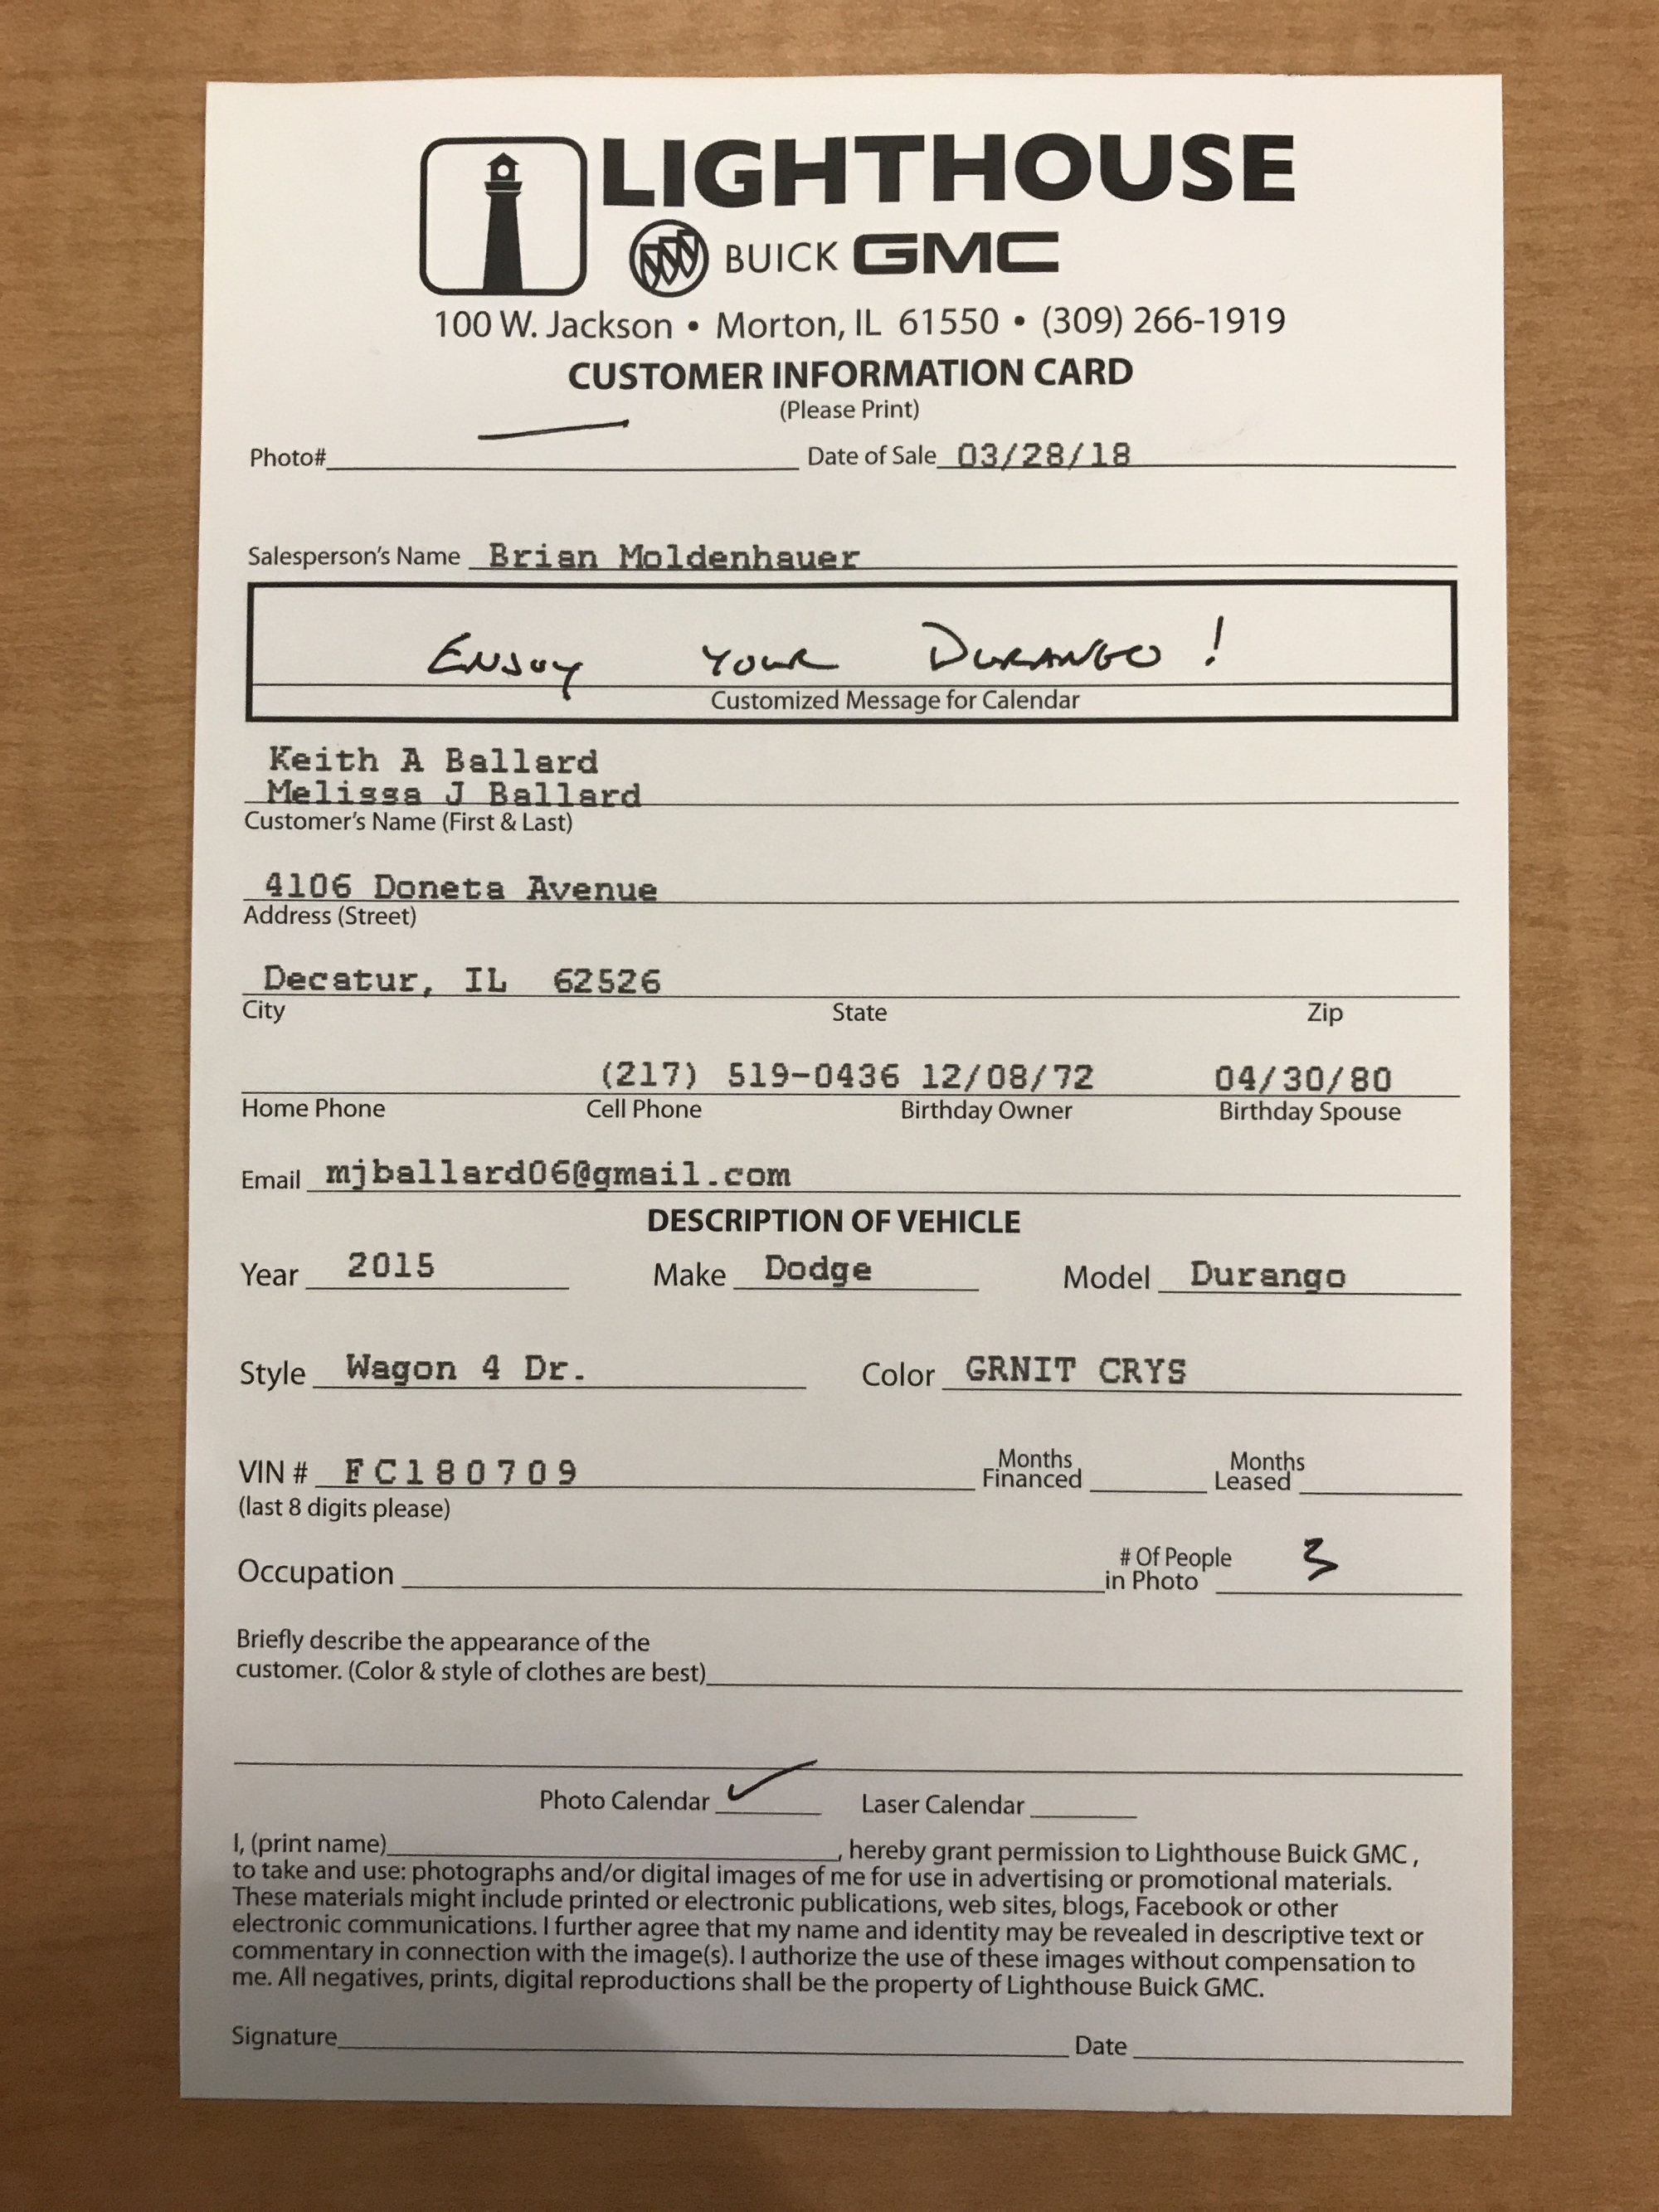 LIGHTHOUSE
BUICK GMC
100 W. Jackson • Morton, IL 61550 • (309) 266-1919
CUSTOMER INFORMATION CARD
(Please Print)
Photo# Date of Sale 03/28/18
Salesperson's Name Brian Moldenhauer
ENJOY YOUR DURANGO!
Customized Message for Calendar
Keith A Ballard
Melissa J Ballard
Customer's Name (First & Last)
4106 Doneta Avenue
Address (Street)
Decatur, IL 62526
City State Zip
(217) 519-0436 12/08/72 04/30/80
Home Phone Cell Phone Birthday Owner Birthday Spouse
Email mjballard06@gmail.com
DESCRIPTION OF VEHICLE
Year 2015 Make Dodge Model Durango
Style Wagon 4 Dr. Color GRNIT CRYS
VIN # FC180709 Months Financed Months Leased
(last 8 digits please)
Occupation # Of People in Photo 3
Briefly describe the appearance of the
customer. (Color & style of clothes are best)
Photo Calendar ✓ Laser Calendar
I, (print name) , hereby grant permission to Lighthouse Buick GMC ,
to take and use: photographs and/or digital images of me for use in advertising or promotional materials.
These materials might include printed or electronic publications, web sites, blogs, Facebook or other
electronic communications. I further agree that my name and identity may be revealed in descriptive text or
commentary in connection with the image(s). I authorize the use of these images without compensation to
me. All negatives, prints, digital reproductions shall be the property of Lighthouse Buick GMC.
Signature Date